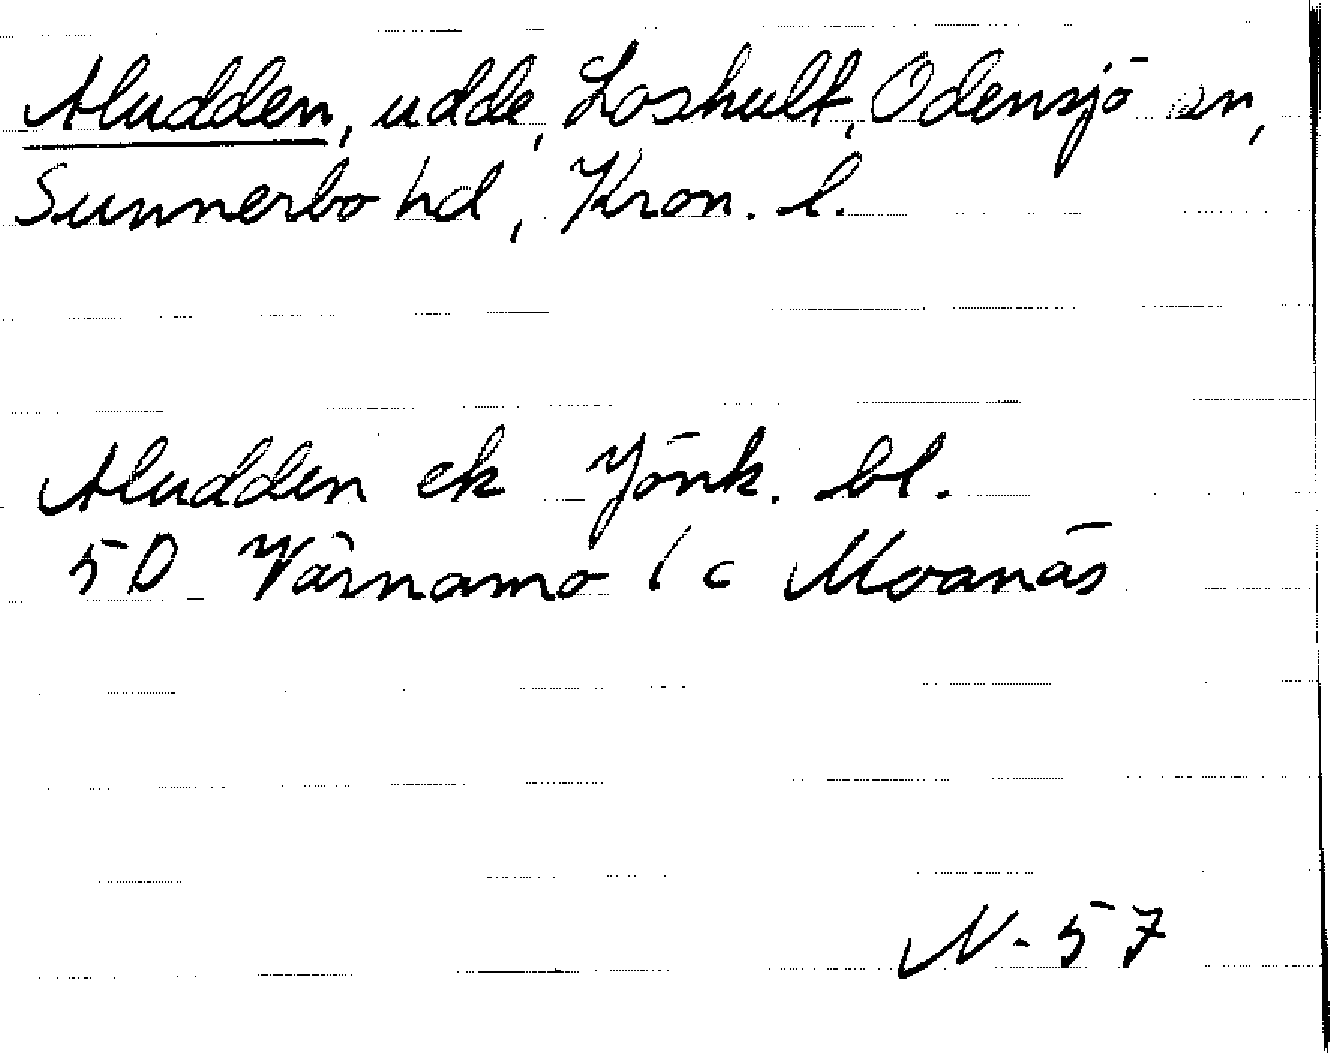 Aludden, udde, Loshult, Odensjö sn,
Sunnerbo hd, Kron. l.
Aludden ek Jönk. bl.
5D Värnamo 1c Moanäs
N-57